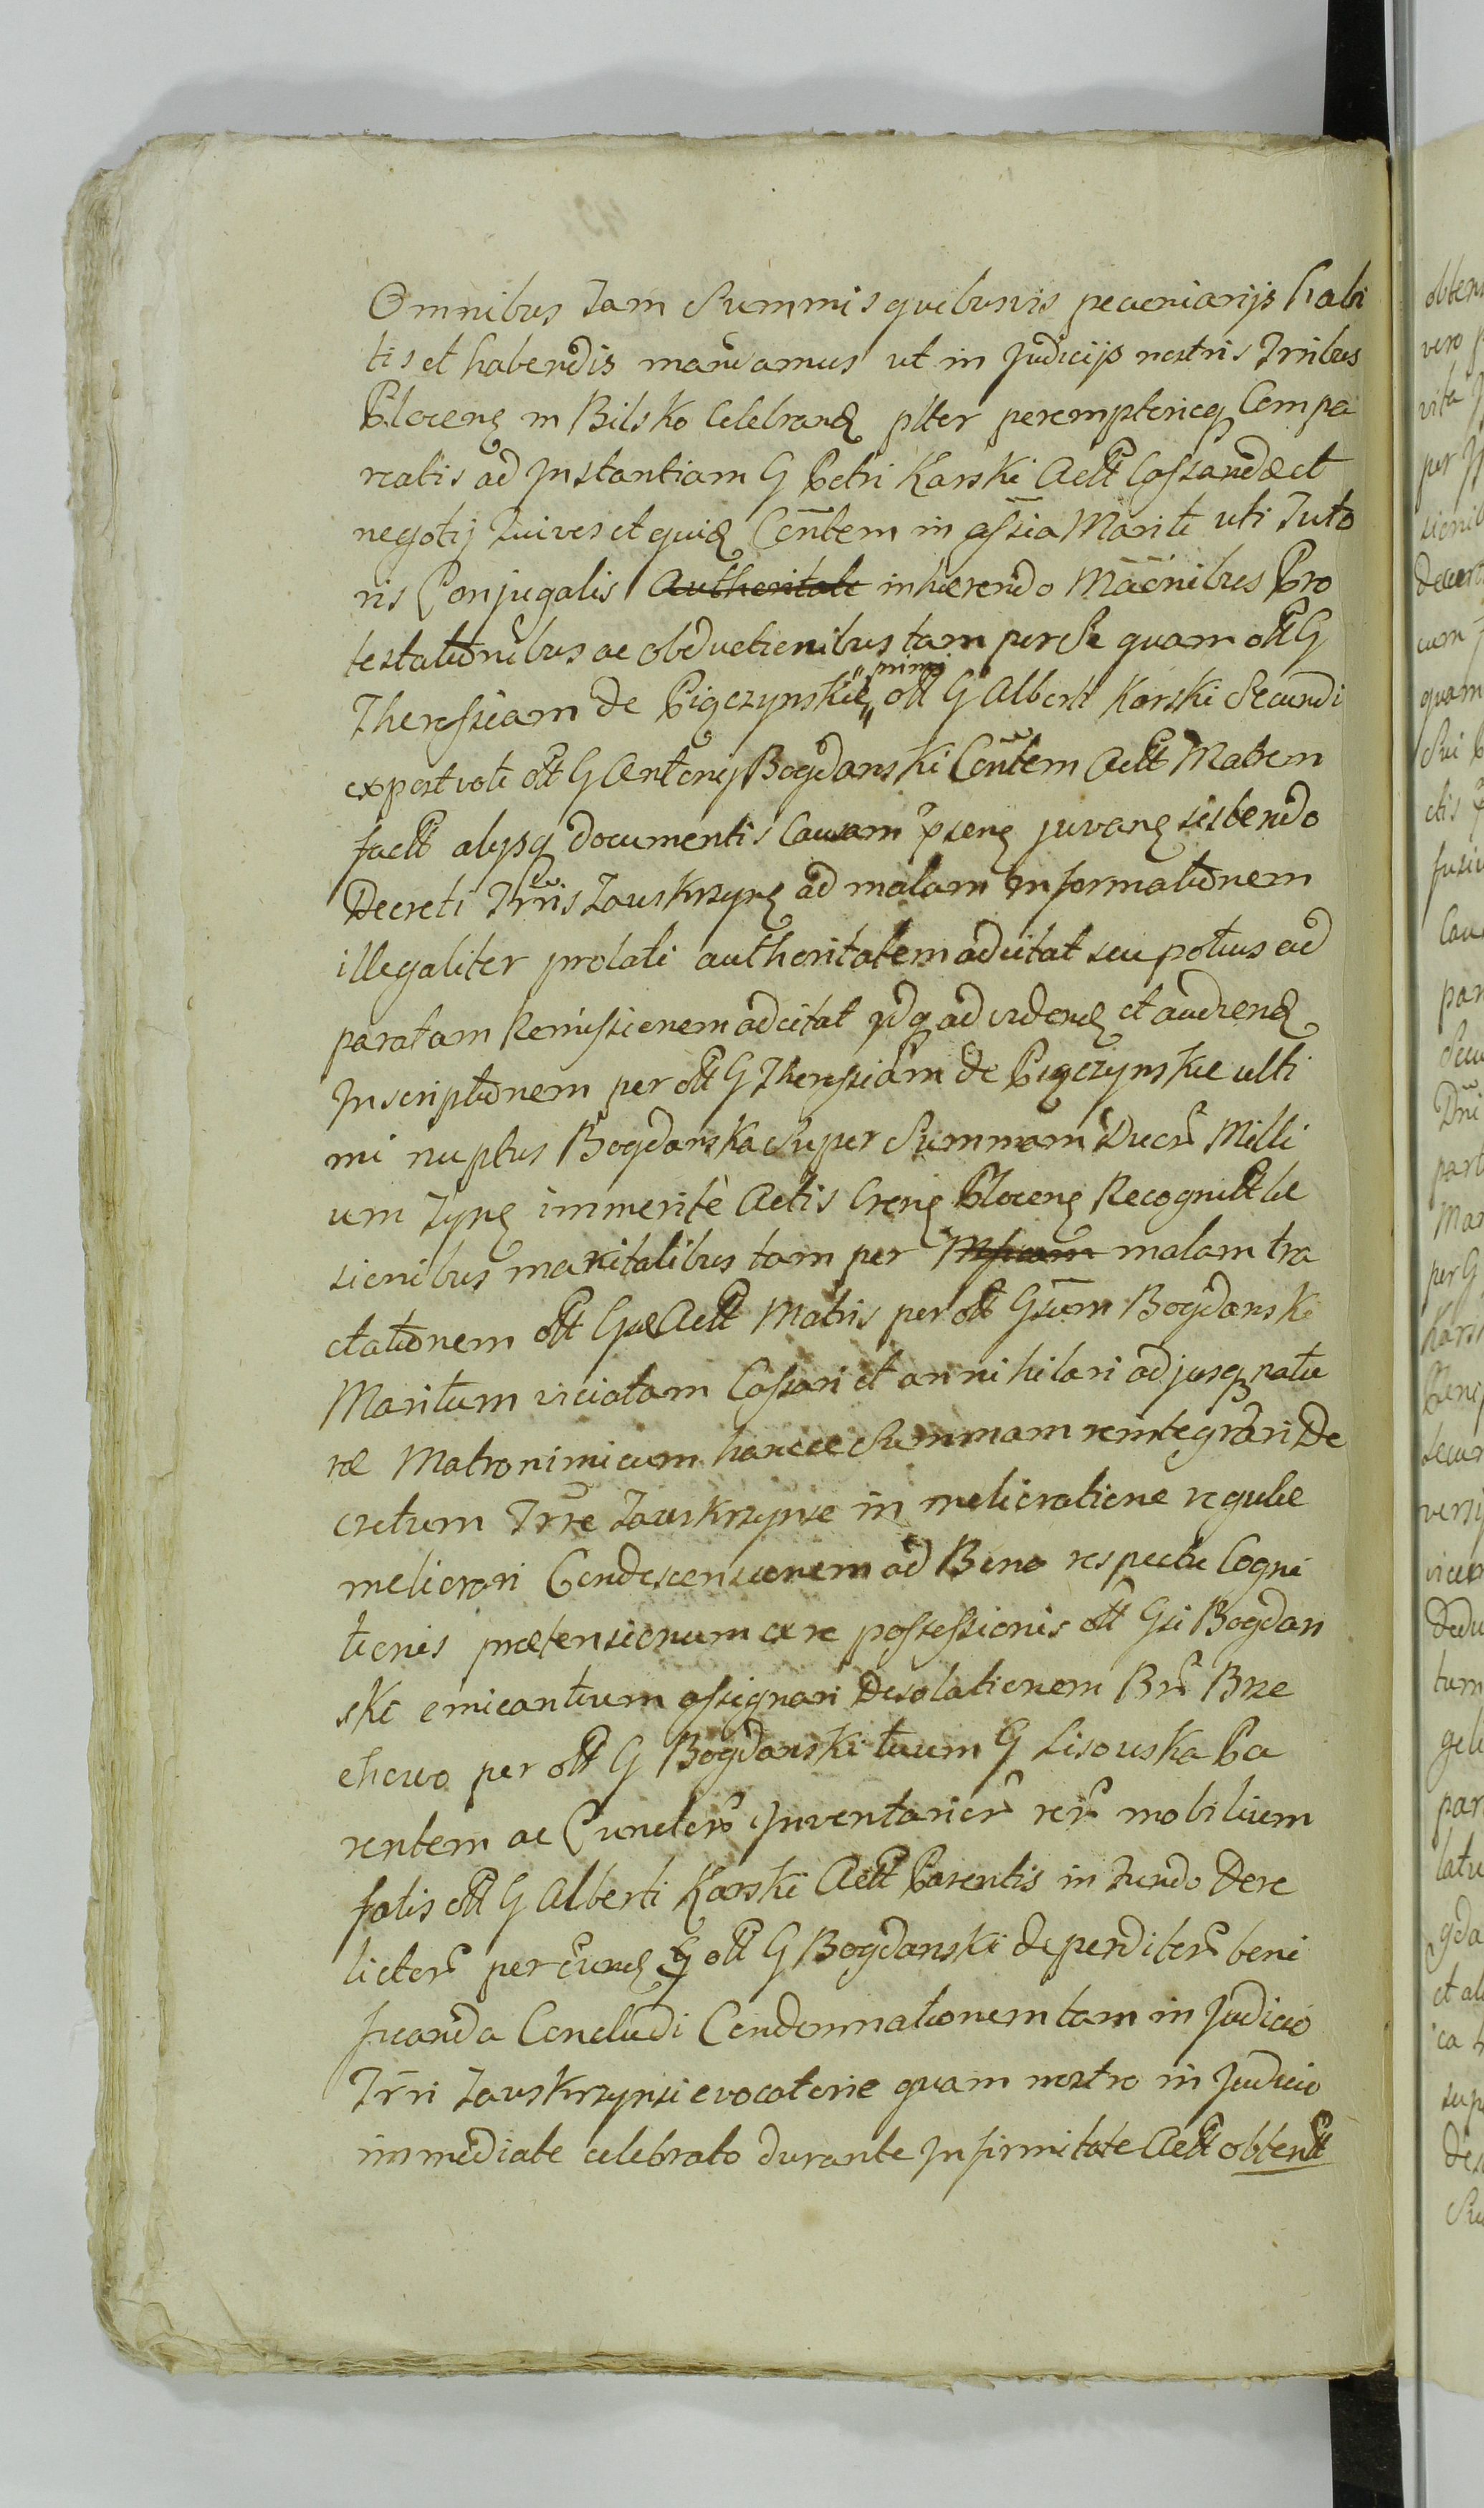 Omnibus Tam Summis quibusvis pecuniarijs habi
tis et habendis mandamus ut in Judicijs nostris Trribus
Plocen in Bilsko Celebrand plter perempterieq Compa
reatis ad Instantiam G Petri Karski Actt Cassandæ et
negotij Tuives et quid Contem in assia Mariti uti Tuto
ris Conjugalis Authoritate inhærendo Maonibus Pro
testationibus ac obductionibus tam per Se quam ott G
Theressiam de Pigczynskie primi ott G Alberti Karski Secundi
expost voti ott G Antonij Bogdanski Contem Actt Matrem
factt alysq documentis Causam psene juvane sistendo
Decreti Trris Zauskrzyn ad malam Informationem
illegaliter prolati authoritatem adcitat seu potius ad
paratam Remissionem adcitat idq ad vidend et audiend
Inscriptionem per ott G Theressiam de Pigczynskie ulti
mi nuptus Bogdanska Super Summam Ducr Milli
um Tyn immeritè Actis Cren Plocen Recognitt læ
sionibus maritalibus tam per malam tra
ctationem ott Gæ Actt Matris per ott Gsum Bogdanski
Maritum viciatam Cassari et annihilari ad jusq natu
ræ Matronimicum hancce Summam reintegrari De
cretum Trre Zauskrzynse in melioratione regulæ
meliorari Condescensionem ad Bina respectu Cogni
tionis prætensionum ex re possessionis ott Gsi Bogdan
ski emicantium assignari Desolationem Br Brze
chowo per ott G Bogdanski tuum G Lisowska Pa
rentem ac Cunctor Inventarior rer mobilium
fatis ott G Alberti Karski Actt Parentis in Fundo Dere
lictor per eund G ott G Bogdanski deperditor beni
ficanda Concludi Condemnationem tam in Judicio
Trri Zauskrzynsi evocatorie quam nostro in Judicio
immediate celebrato durante Infirmitate Actt obtentt